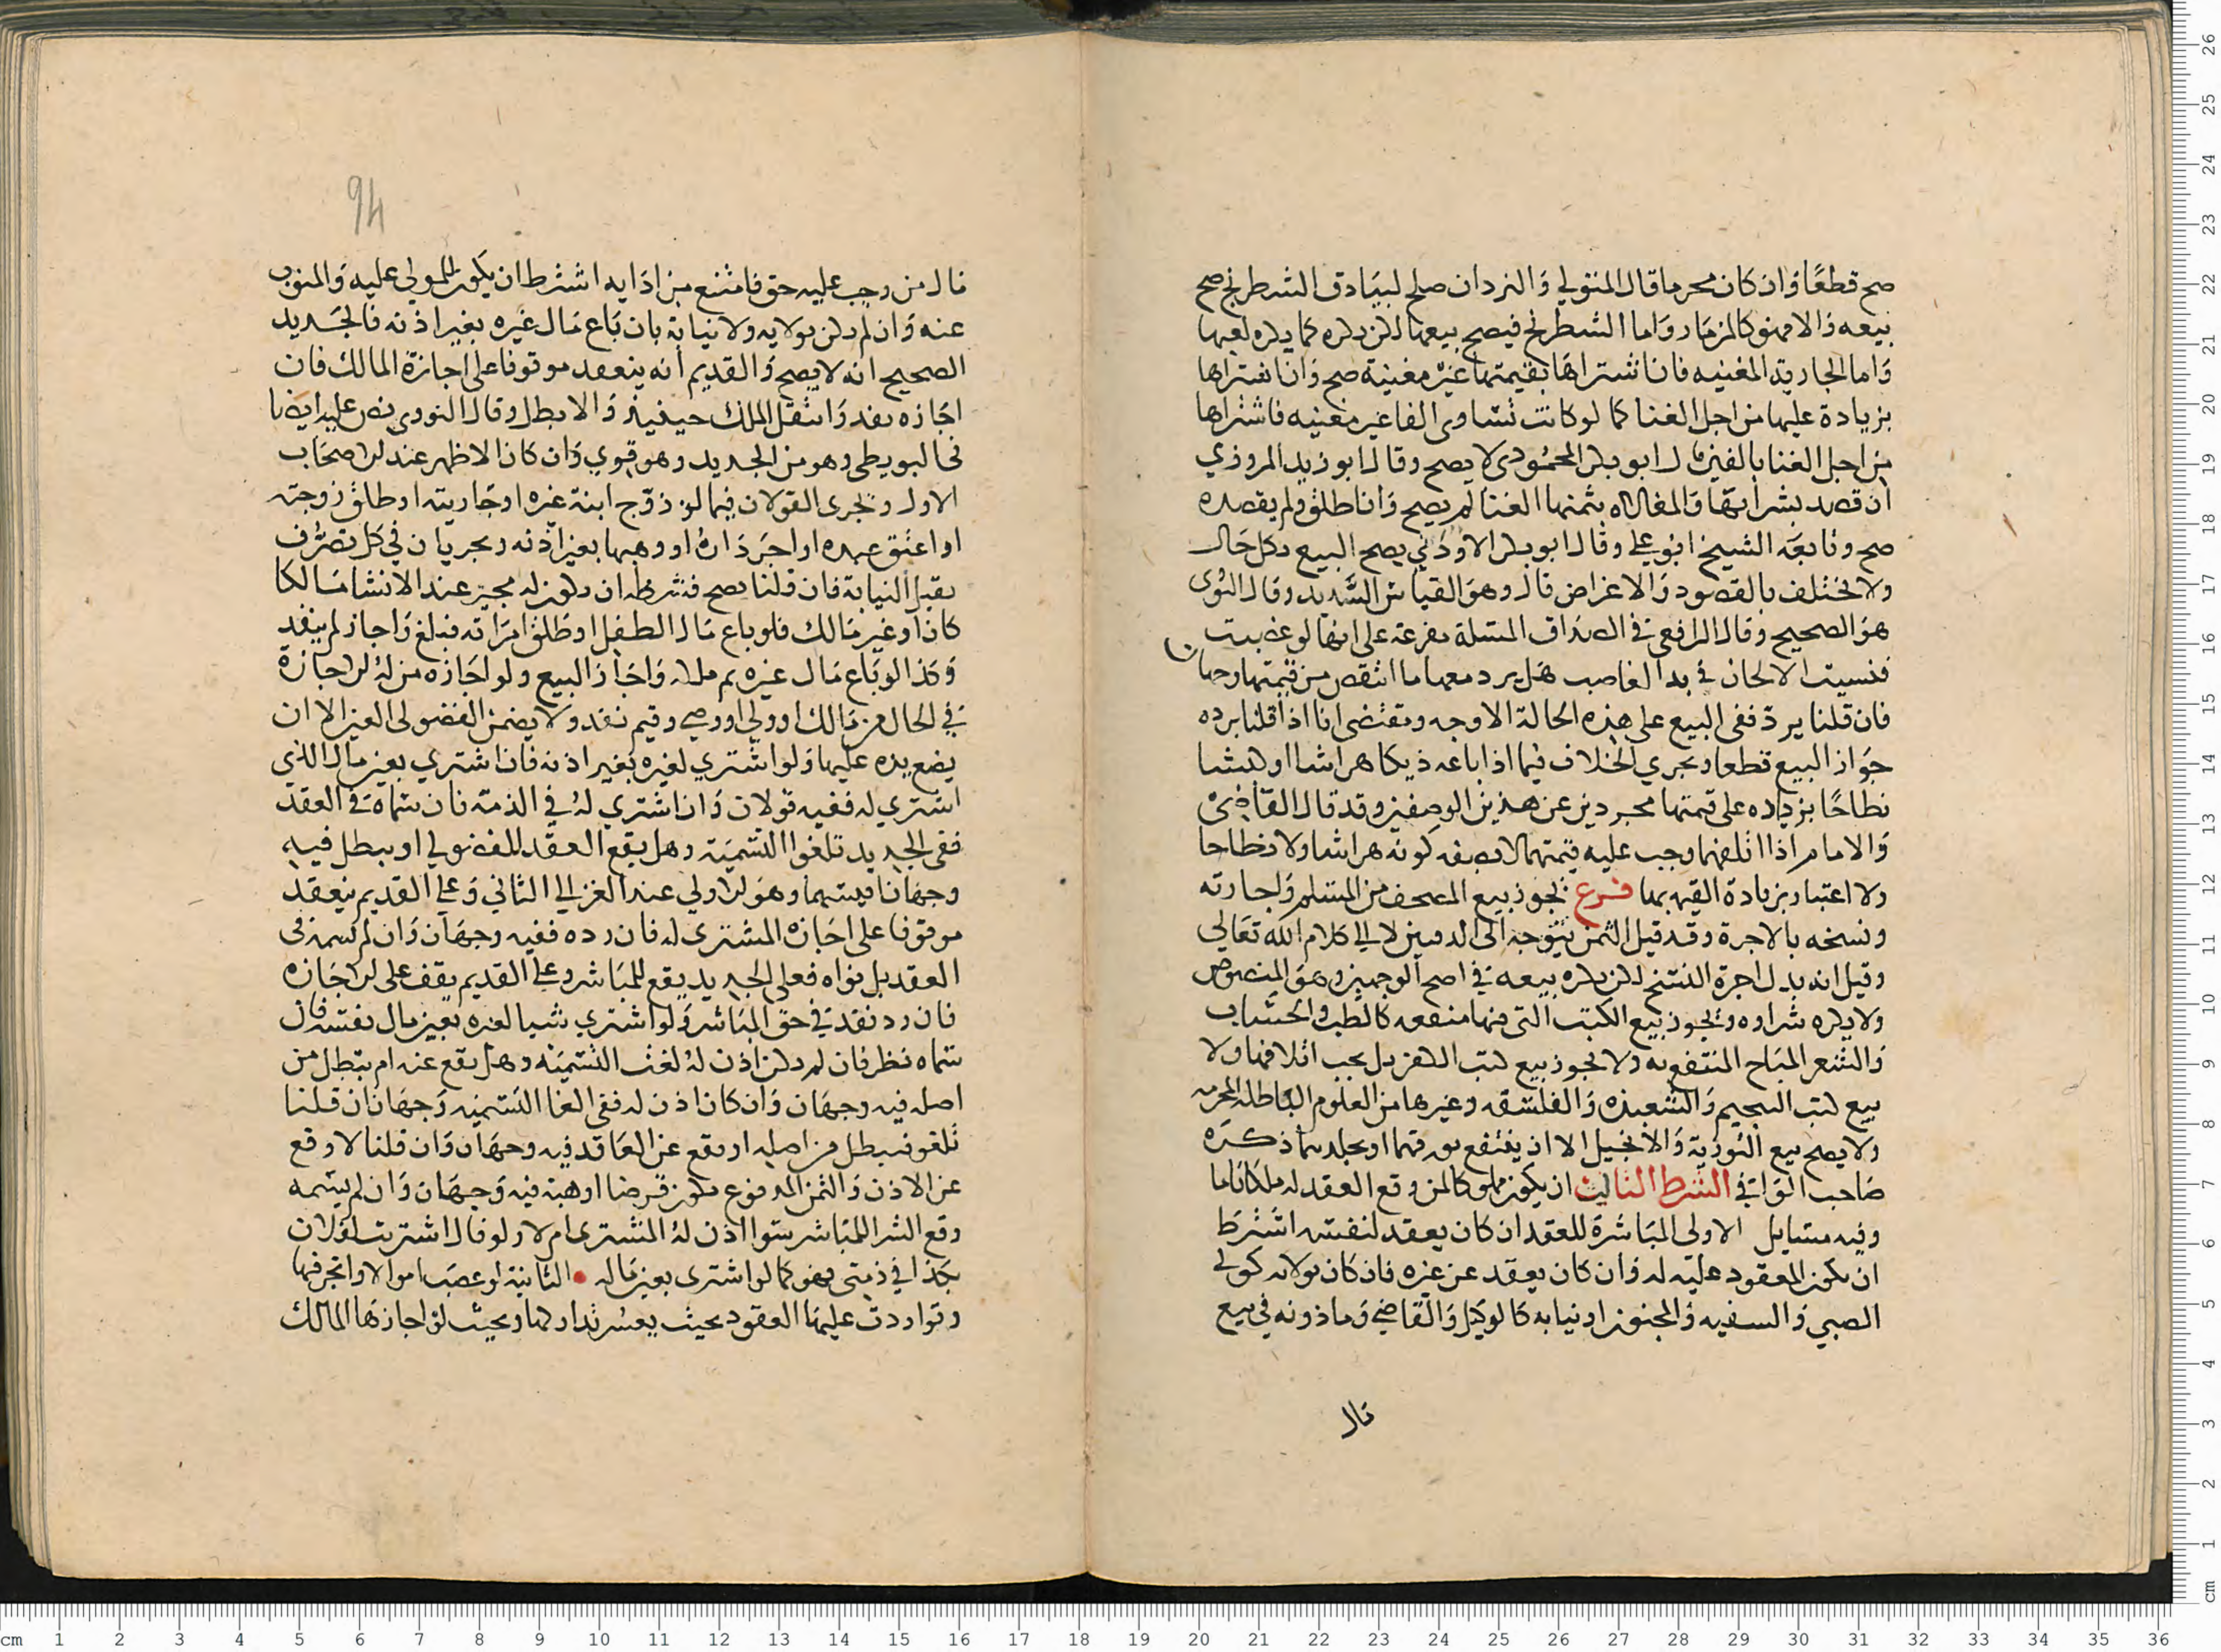 صح قطعًا وان كان محرما قال المتولي والنردان صلح لبيادق الشطرنج صح
بيعه والا فهو كالمزمار واما الشطرنج فيصح بيعها لكن يكره كما يكره لعبها
واما الجارية المغنيه فان اشتراها بقيمتها غير مغنية صح وان اشتراها
بزيادة عليها من اجل الغنا كما لو كانت تساوي الفا غير مغنيه فاشتراها
من اجل الغنا بالفين قال ابو بكر المحمودي لا يصح وقال ابو زيد المروزي
ان قصد بشرائها والمغالاه بثمنها الغنا لم يصح وان اطلق ولم يقصده
صح وتابعه الشيخ ابو علي وقال ابو بكر الاودني يصح البيع بكل حال
ولا تختلف بالقصود والاغراض قال وهو القياس السديد وقال النووي
هو الصحيح وقال الرافعي في الصداق المسئلة مفرعة على انها لو غصبت
فنسيت الالحان في يد الغاصب هل يرد معها ما انتقص من قيمتها وجهان
فان قلنا يرد ففي البيع على هذه الحالة الاوجه ومقتضى انا اذا قلنا برده
جواز البيع قطعا ويجري الخلاف فيما اذا باعه ديكا هراشا او كبشا
نطاحًا بزياده على قيمتها مجردين عن هذين الوصفين وقد قال القاضي
والامام اذا اتلفهما وجب عليه قيمتهما لا بصفه كونه هراشا ولا نطاحا
ولا اعتبار بزيادة القيمه بهما فرع يجوز بيع المصحف من المسلم واجارته
ونسخه بالاجرة وقد قيل الثمن يتوجه الى الدفتين لا الى كلام الله تعالى
وقيل انه بدل اجرة النسخ لكن يكره بيعه في اصح الوجهين وهو المنصوص
ولا يكره شراوه ويجوز بيع الكتب التي فيها منفعه كالطب والحساب
والشعر المباح المنتفع به ولا يجوز بيع كتب الكفر بل يجب اتلافها ولا
بيع كتب التنجيم والشعبذه والفلسفه وغيرها من العلوم الباطله المحرمه
ولا يصح بيع التورية والانجيل الا ان ينتفع بورقهما او بجلدهما ذكره
صاحب الوافي الشرط الثالث ان يكون مملوكا لمن وقع العقد له ملكا تاما
وفيه مسايل الاولى المباشرة للعقد ان كان يعقد لنفسه اشترط
ان يكون المعقود عليه له وان كان يعقد عن غيره فان كان بولايه كولي
الصبي والسفيه والمجنون او نيابه كالوكيل والقاضي وماذونه في بيع
مال
94
مال من وجب عليه حق فامتنع من ادايه اشترط ان يكون للمولي عليه والمنوب
عنه وان لم يكن بولايه ولا نيابة بان باع مال غيره بغير اذنه فالجديد
الصحيح انه لا يصح والقديم انه ينعقد موقوفا على اجازة المالك فان
اجازه نفد وانتقل الملك حينيذ والا بطل وقال النووي نص عليه ايضا
في البويطي وهو من الجديد وهو قوي وان كان الاظهر عند الاصحاب
الاول ويجري القولان فيما لو زوج ابنة غيره او جاريته او طلق زوجته
او اعتق عبده او اجر داره او وهبها بغير اذنه ويجريان في كل تصرف
يقبل النيابة فان قلنا يصح فشرطه ان يكون له مجيز عند الانشا مالكا
كان او غير مالك فلو باع مال الطفل او طلق امراته فبلغ واجاز لم ينفد
وكذا لو باع مال غيره ثم ملكه واجاز البيع ولو اجازه من له الاجازة
في الحال من مالك او ولي او وصي وقيم نفد ولا يضمن الفضولي العين الا ان
يضع يده عليها ولو اشتري لغيره بغير اذنه فان اشتري بعين مال الذي
اشتري له ففيه قولان وان اشتري له في الذمة فان سماه في العقد
ففي الجديد تلغوا التسمية وهل يقع العقد للفضولي او يبطل فيه
وجهان اقيسهما وهو الاولي عند الغزالي الثاني وعلي القديم ينعقد
موقوفا على اجازه المشتري له فان رده ففيه وجهان وان لم يسمه في
العقد بل نواه فعلى الجديد يقع للمباشر وعلي القديم يقف على الاجازه
فان رد نفد في حق المباشر ولو اشتري شيا لغيره بعين مال نفسه فان
سماه نظر فان لم يكن اذن له لغت التسميه وهل يقع عنه ام يبطل من
اصله فيه وجهان وان كان اذن له ففي الغا التسميه وجهان ان قلنا
تلغو فيبطل من اصله او يقع عن العاقد فيه وجهان وان قلنا لا وقع
عن الاذن والثمن المدفوع يكون قرضا او هبة فيه وجهان وان لم يسمه
وقع الشرا للمباشر سوا اذن له المشتري ام لا ولو قال اشتريت لفلان
بكذا في ذمتي فهو كما لو اشترى بعين ماله • الثانية لو غصب اموالا واتجر فيها
وتواردت عليها العقود بحيث يعسر تداركها وبحيث لو اجازها المالك